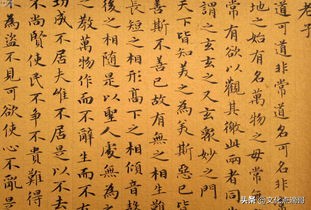 老子
道可道非常道名可名非
地之始有名萬物之母常無
常有欲以觀其徼此兩者同
謂之玄玄之又玄眾妙之門
天下皆知美之為美斯惡已皆
善斯不善已故有無之相
長短之相形高下之相傾音聲
後之相隨是以聖人處無為
之教萬物作而不辭生而不
功成不居夫惟不居是以不去
不尚賢使民不爭不貴難得
為盜不見可欲使心不亂是